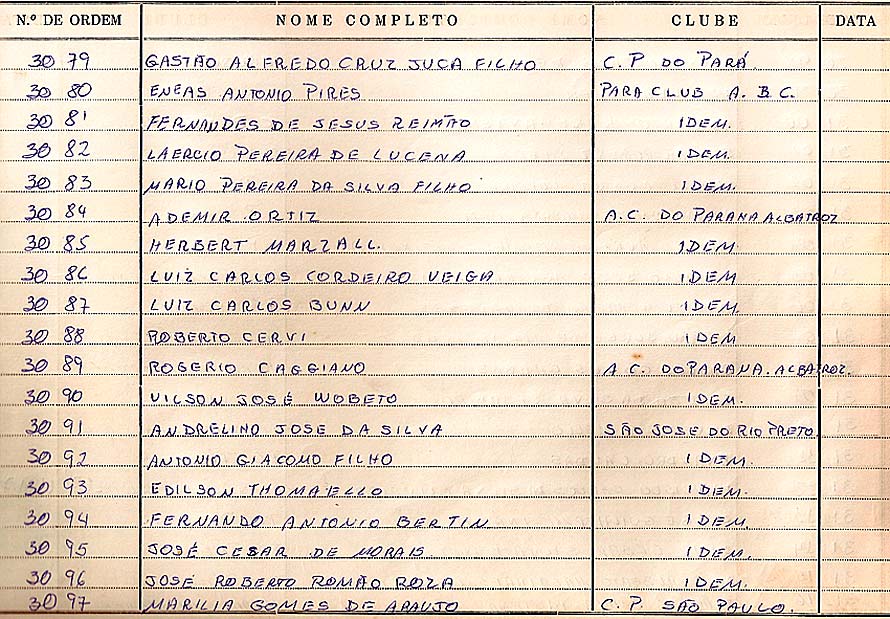 N.º DE ORDEM NOME COMPLETO CLUBE DATA
30 79 GASTÃO ALFREDO CRUZ JUCA FILHO C. P DO PARÁ
30 80 ENEAS ANTONIO PIRES PARA CLUB A. B. C.
30 81 FERNANDES DE JESUS REIMÃO IDEM.
30 82 LAERCIO PEREIRA DE LUCENA IDEM.
30 83 MARIO PEREIRA DA SILVA FILHO IDEM.
30 84 ADEMIR ORTIZ A.C. DO PARANA ALBATROZ
30 85 HERBERT MARZALL. IDEM
30 86 LUIZ CARLOS CORDEIRO VEIGA IDEM
30 87 LUIZ CARLOS BUNN IDEM.
30 88 ROBERTO CERVI IDEM
30 89 ROGERIO CAGGIANO A C. DO PARANA. ALBATROZ.
30 90 VILSON JOSÉ WOBETO IDEM.
30 91 ANDRELINO JOSE DA SILVA SÃO JOSE DO RIO PRETO
30 92 ANTONIO GIACOMO FILHO IDEM.
30 93 EDILSON THOMAELLO IDEM.
30 94 FERNANDO ANTONIO BERTIN IDEM.
30 95 JOSÉ CESAR DE MORAIS IDEM.
30 96 JOSE ROBERTO ROMÃO ROZA IDEM.
30 97 MARILIA GOMES DE ARAUJO C. P. SÃO PAULO.